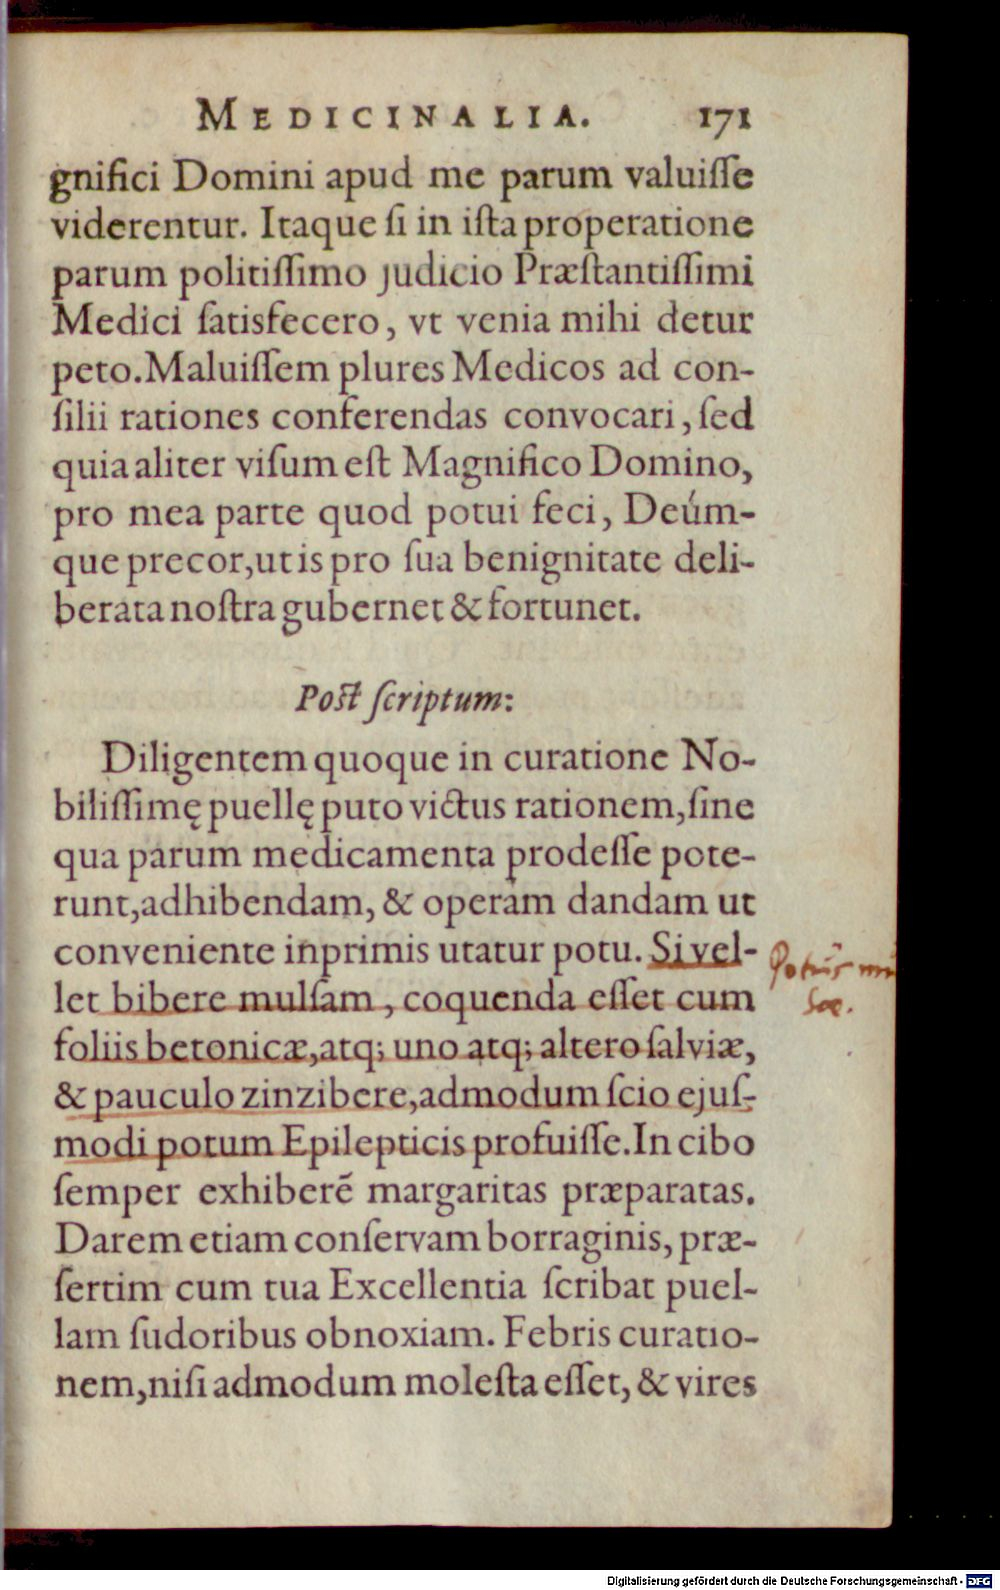 MEDICINALIA. 171
gnifici Domini apud me parum valuiſſe
viderentur. Itaque ſi in iſta properatione
parum politiſſimo judicio Præſtantiſſimi
Medici ſatisfecero, vt venia mihi detur
peto. Maluiſſem plures Medicos ad con-
ſilii rationes conferendas convocari, ſed
quia aliter viſum eſt Magnifico Domino,
pro mea parte quod potui feci, Deúm-
que precor, ut is pro ſua benignitate deli-
berata noſtra gubernet & fortunet.
Poſt ſcriptum:
Diligentem quoque in curatione No-
biliſſimę puellę puto victus rationem, ſine
qua parum medicamenta prodeſſe pote-
runt, adhibendam, & operam dandam ut
conveniente inprimis utatur potu. Si vel-
let bibere mulſam, coquenda eſſet cum
foliis betonicæ, atq; uno atq; altero ſalviæ,
& pauculo zinzibere, admodum ſcio ejuſ-
modi potum Epilepticis profuiſſe. In cibo
ſemper exhiberẽ margaritas præparatas.
Darem etiam conſervam borraginis, præ-
ſertim cum tua Excellentia ſcribat puel-
lam ſudoribus obnoxiam. Febris curatio-
nem, niſi admodum moleſta eſſet, & vires
Digitalisierung gefördert durch die Deutsche Forschungsgemeinschaft - DFG